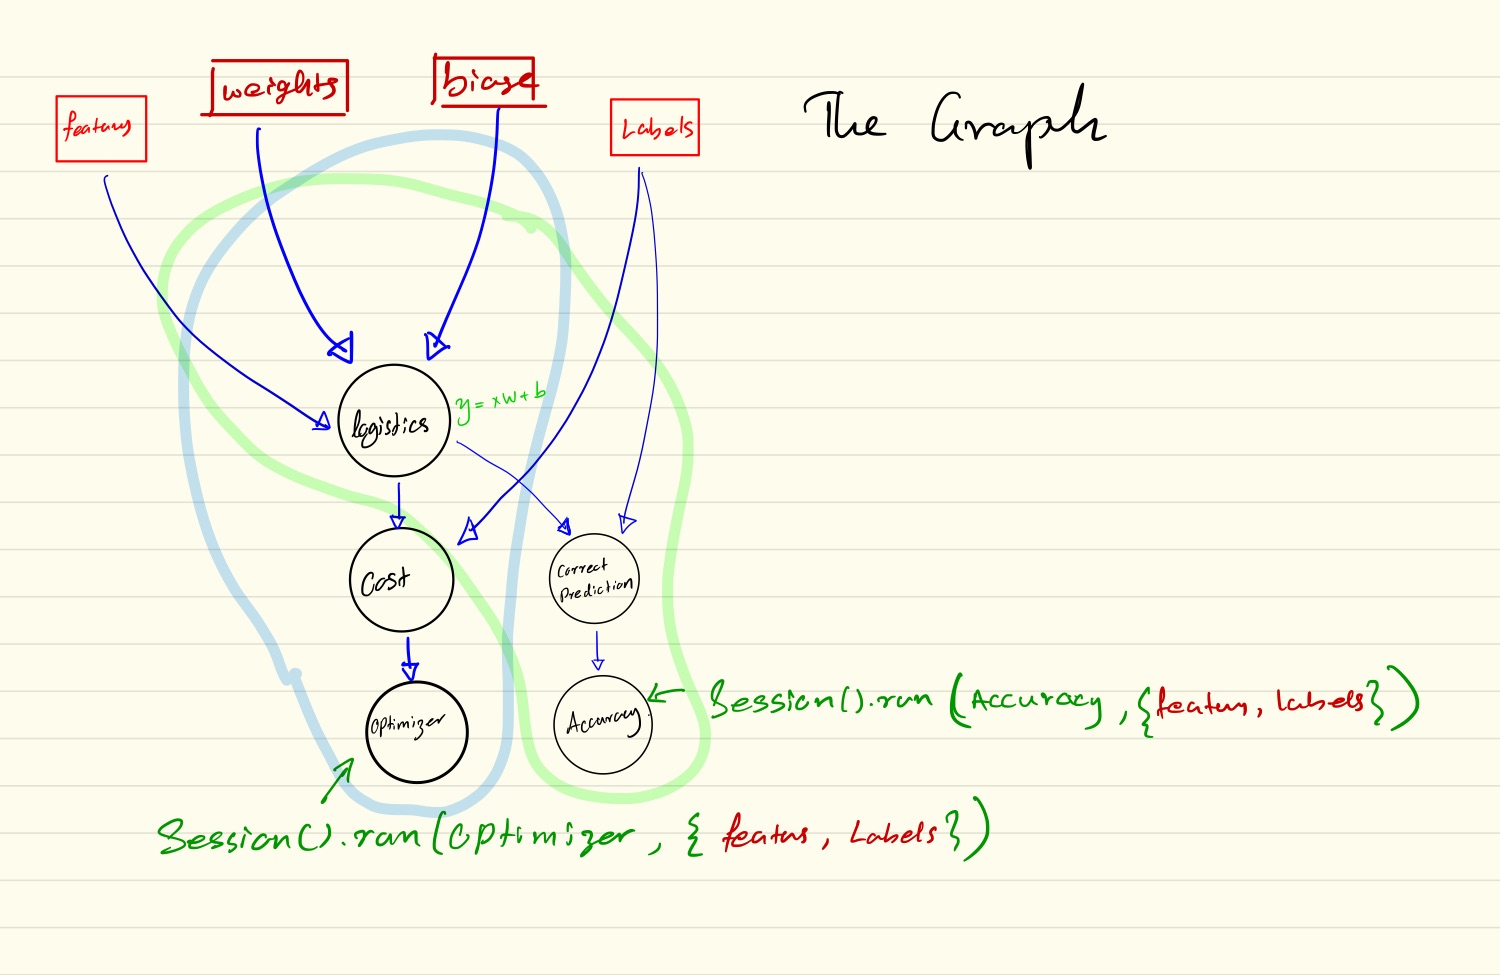 The Graph
weights
biase
features
Labels
logistics
y = xw + b
Cost
Correct
Prediction
optimizer
Accuracy
Session().run (Accuracy, {features, labels})
Session().run (optimizer, { featurs, Labels })